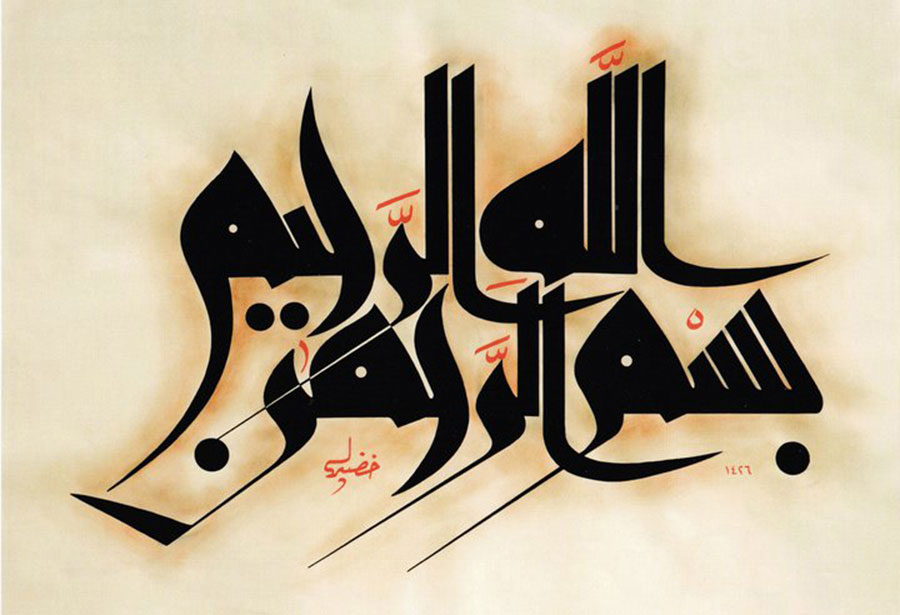 بسْم اللَّه الرَّحمٰن الرَّحيم
١٤٢٦